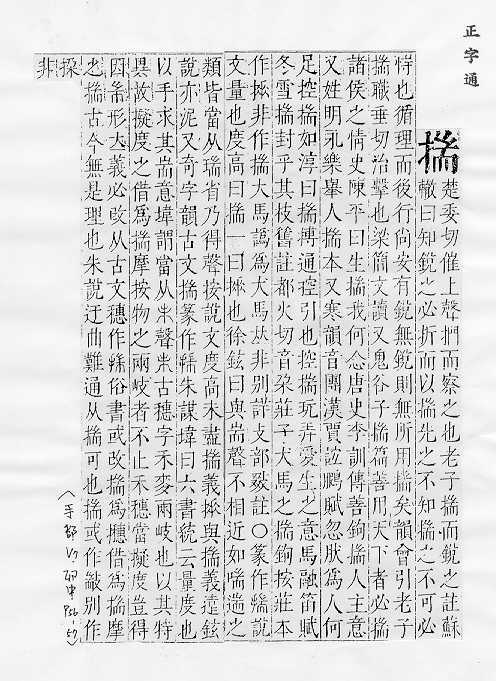 正字通
揣
楚委切催上聲捫而察之也老子揣而銳之註蘇
轍曰知銳之必折而以揣先之不知揣之不可必
恃也循理而後行尚安有銳無銳則無所用揣矣韻會引老子
揣職垂切治擊也梁簡文讀又鬼谷子揣篇善用天下者必揣
諸侯之情史陳平曰生揣我何念唐史李訓傳善鉤揣人主意
又姓明永樂舉人揣本又寒韻音團漢賈誼鵩賦忽肰爲人何
足控揣如淳曰揣摶通控引也控揣玩弄愛生之意馬融笛賦
冬雪揣封乎其枝舊註都火切音朶莊子大馬之揣鉤按莊本
作捶非作揣大馬譌爲犬馬𠀤非別詳攴部敪註〇篆作揣說
文量也度高曰揣一曰捶也徐鉉曰與耑聲不相近如喘遄之
類皆當从瑞省乃得聲按說文度高未盡揣義捶與揣義遠鉉
說亦泥又奇字韻古文揣篆作 朱謀㙔曰六書統云量度也
以手求其耑意㙔謂當从 聲 古穗字禾麥兩岐也以其特
異故擬度之借爲揣摩按物之兩岐者不止禾穗當擬度豈得
因 形 義必改从古文穗作 俗書或改揣爲 借爲揣摩
之揣古今無是理也朱說迂曲難通从揣可也揣或作敪別作
㨊非
(手部 卯